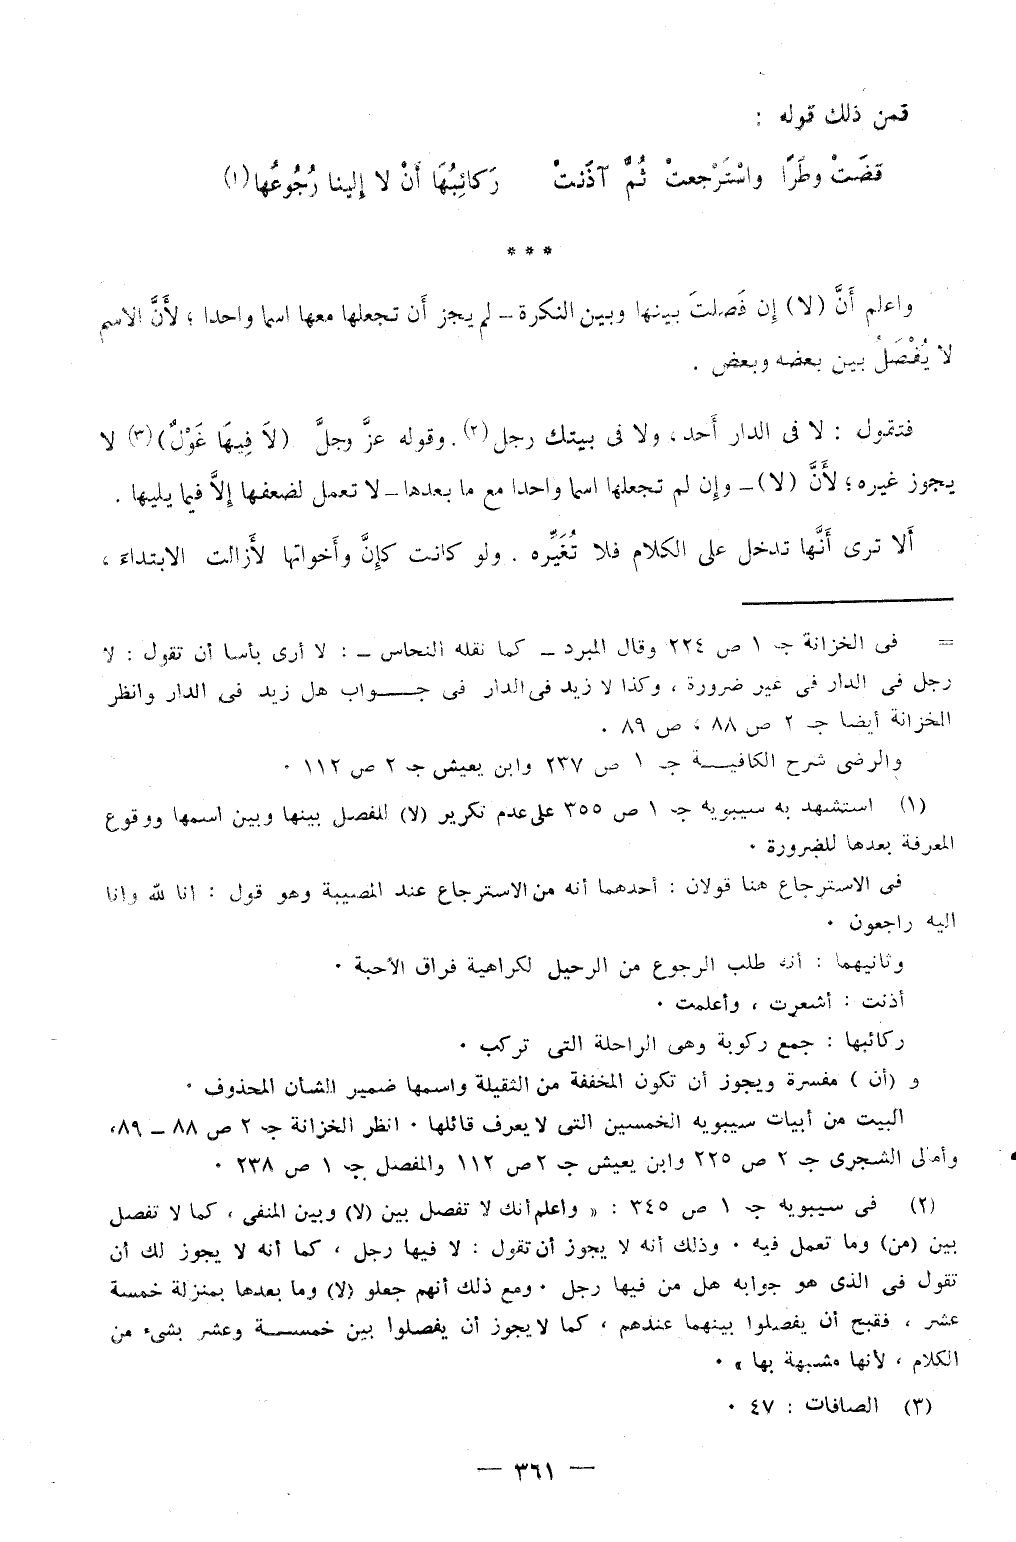 فمن ذلك قوله :
قضَتْ وطَرًا واسْتَرْجعتْ ثُمَّ آذَنتْ رَكائِبُهَا أَنْ لا إلينا رُجُوعُها(١)
* * *
واعلم أَنَّ (لا) إن فَصلتَ بينها وبين النكرة – لم يجز أَن تجعلها معها اسما واحدا ؛ لأَنَّ الاسم
لا يُفْصَلُ بين بعضه وبعض .
فتقول : لا فى الدار أَحد ، ولا فى بيتك رجل(٢) . وقوله عزَّ وجلَّ (لاَ فِيهَا غَوْلٌ)(٣) لا
يجوز غيره ؛ لأَنَّ (لا) – وإن لم تجعلها اسما واحدا مع ما بعدها – لا تعمل لضعفها إلاَّ فيما يليها .
أَلا ترى أَنَّها تدخل على الكلام فلا تُغَيِّره . ولو كانت كإنَّ وأَخواتها لأَزالت الابتداءَ ،
= فى الخزانة جـ ١ ص ٢٢٤ وقال المبرد – كما نقله النحاس – : لا أرى بأسا أن تقول : لا
رجل فى الدار فى غير ضرورة ، وكذا لا زيد فى الدار فى جـــواب هل زيد فى الدار وانظر
الخزانة أيضا جـ ٢ ص ٨٨ ، ص ٨٩ .
والرضى شرح الكافيـــة جـ ١ ص ٢٣٧ وابن يعيش جـ ٢ ص ١١٢ .
(١) استشهد به سيبويه جـ ١ ص ٣٥٥ على عدم تكرير (لا) المفصل بينها وبين اسمها ووقوع
المعرفة بعدها للضرورة .
فى الاسترجاع هنا قولان : أحدهما أنه من الاسترجاع عند المصيبة وهو قول : انا لله وانا
اليه راجعون .
وثانيهما : أنه طلب الرجوع من الرحيل لكراهية فراق الأحبة .
أذنت : أشعرت ، وأعلمت .
ركائبها : جمع ركوبة وهى الراحلة التى تركب .
و (أن ) مفسرة ويجوز أن تكون المخففة من الثقيلة واسمها ضمير الشأن المحذوف .
البيت من أبيات سيبويه الخمسين التى لا يعرف قائلها . انظر الخزانة جـ ٢ ص ٨٨ – ٨٩،
وأمالى الشجرى جـ ٢ ص ٢٢٥ وابن يعيش جـ ٢ ص ١١٢ والمفصل جـ ١ ص ٢٣٨ .
(٢) فى سيبويه جـ ١ ص ٣٤٥ : « واعلم أنك لا تفصل بين (لا) وبين المنفى ، كما لا تفصل
بين (من) وما تعمل فيه . وذلك أنه لا يجوز أن تقول : لا فيها رجل ، كما أنه لا يجوز لك أن
تقول فى الذى هو جوابه هل من فيها رجل . ومع ذلك أنهم جعلو (لا) وما بعدها بمنزلة خمسة
عشر ، فقبح أن يفصلوا بينهما عندهم ، كما لا يجوز أن يفصلوا بين خمســـة وعشر بشىء من
الكلام ، لأنها مشبهة بها » .
(٣) الصافات : ٤٧ .
— ٣٦١ —